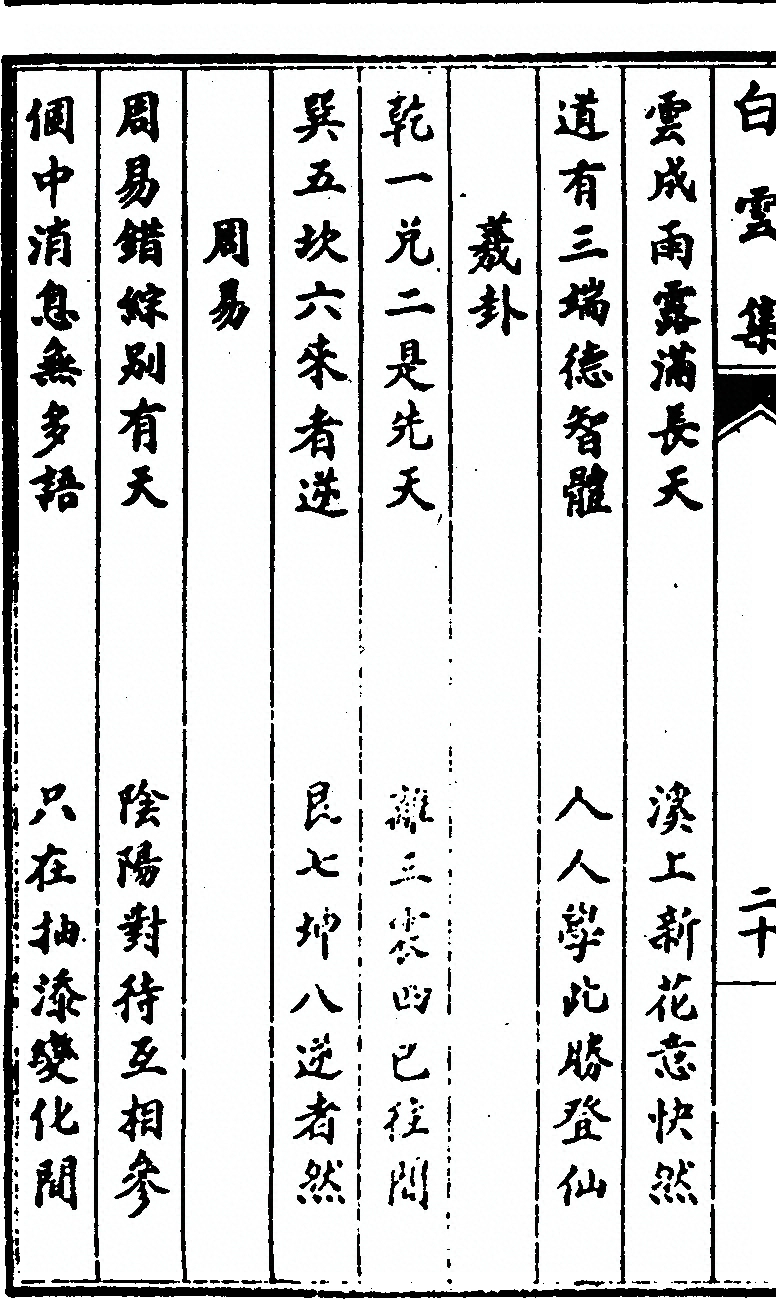 白雲集 二十
雲成雨露滿長天 溪上新花意快然
道有三端德智體 人人學此勝登仙
羲卦
乾一兌二是先天 離三震四已往間
巽五坎六來者逆 艮七坤八逆者然
周易
周易錯綜別有天 陰陽對待互相參
個中消息無多語 只在抽添變化間